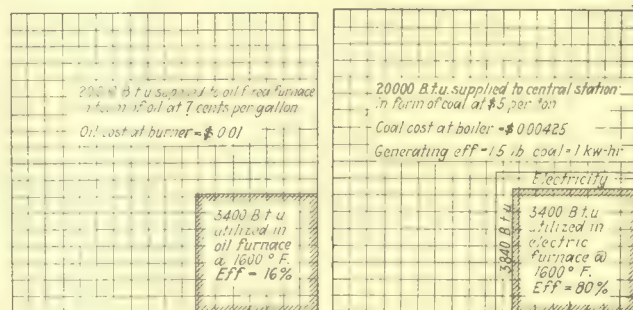 B t u supplied to oil fired furnace
in form of oil at 7 cents per gallon
Oil cost at burner = $ 0.01
3400 B t u
utilized in
oil furnace
@ 1600° F.
Eff = 16%
20000 B.t.u. supplied to central station
in form of coal at $5 per ton
Coal cost at boiler = $0.00425
Generating eff = 1.5 lb. coal = 1 kw-hr
Electricity
3840 B t u
3400 B.t.u.
utilized in
electric
furnace @
1600° F.
Eff = 80%